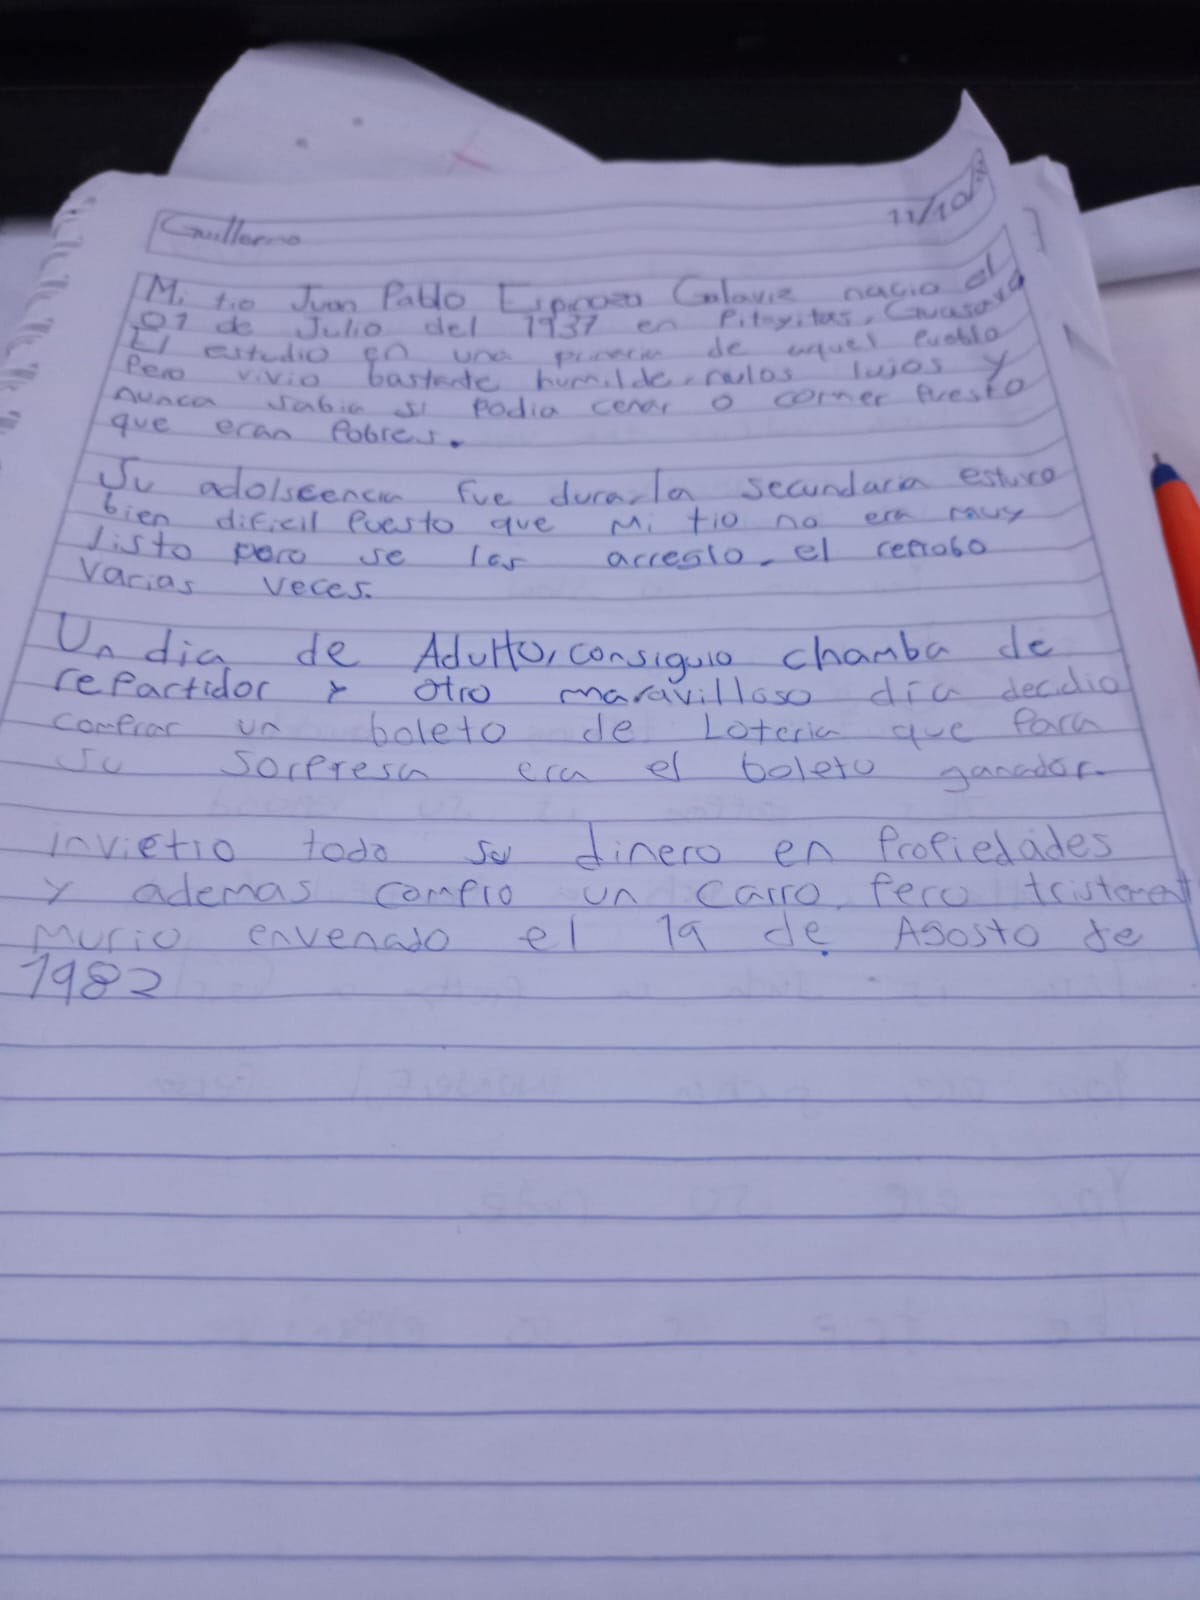 Guillermo
11/10/
Mi tio Juan Pablo Espinoza Galaviz nacio el
01 de Julio del 1937 en Pitayitas, Guasave
El estudio en una primaria de aquel Pueblo
Pero vivio bastante humilde, nulos lujos y
nunca sabia si Podia cenar o comer Puesto
que eran Pobres.
Su adolscencia fue dura, la secundaria estuvo
bien dificil Puesto que Mi tio no era muy
listo pero se las arreglo. el reprobo
Varias Veces.
Un dia de Adulto, consiguio chamba de
rePartidor y otro maravilloso día decidio
comprar un boleto de Loteria que Para
su SorPresa era el boleto ganador.
invietio todo su dinero en Propiedades
y ademas compro un carro, Pero tristement
Murio envenado el 19 de Agosto de
1982